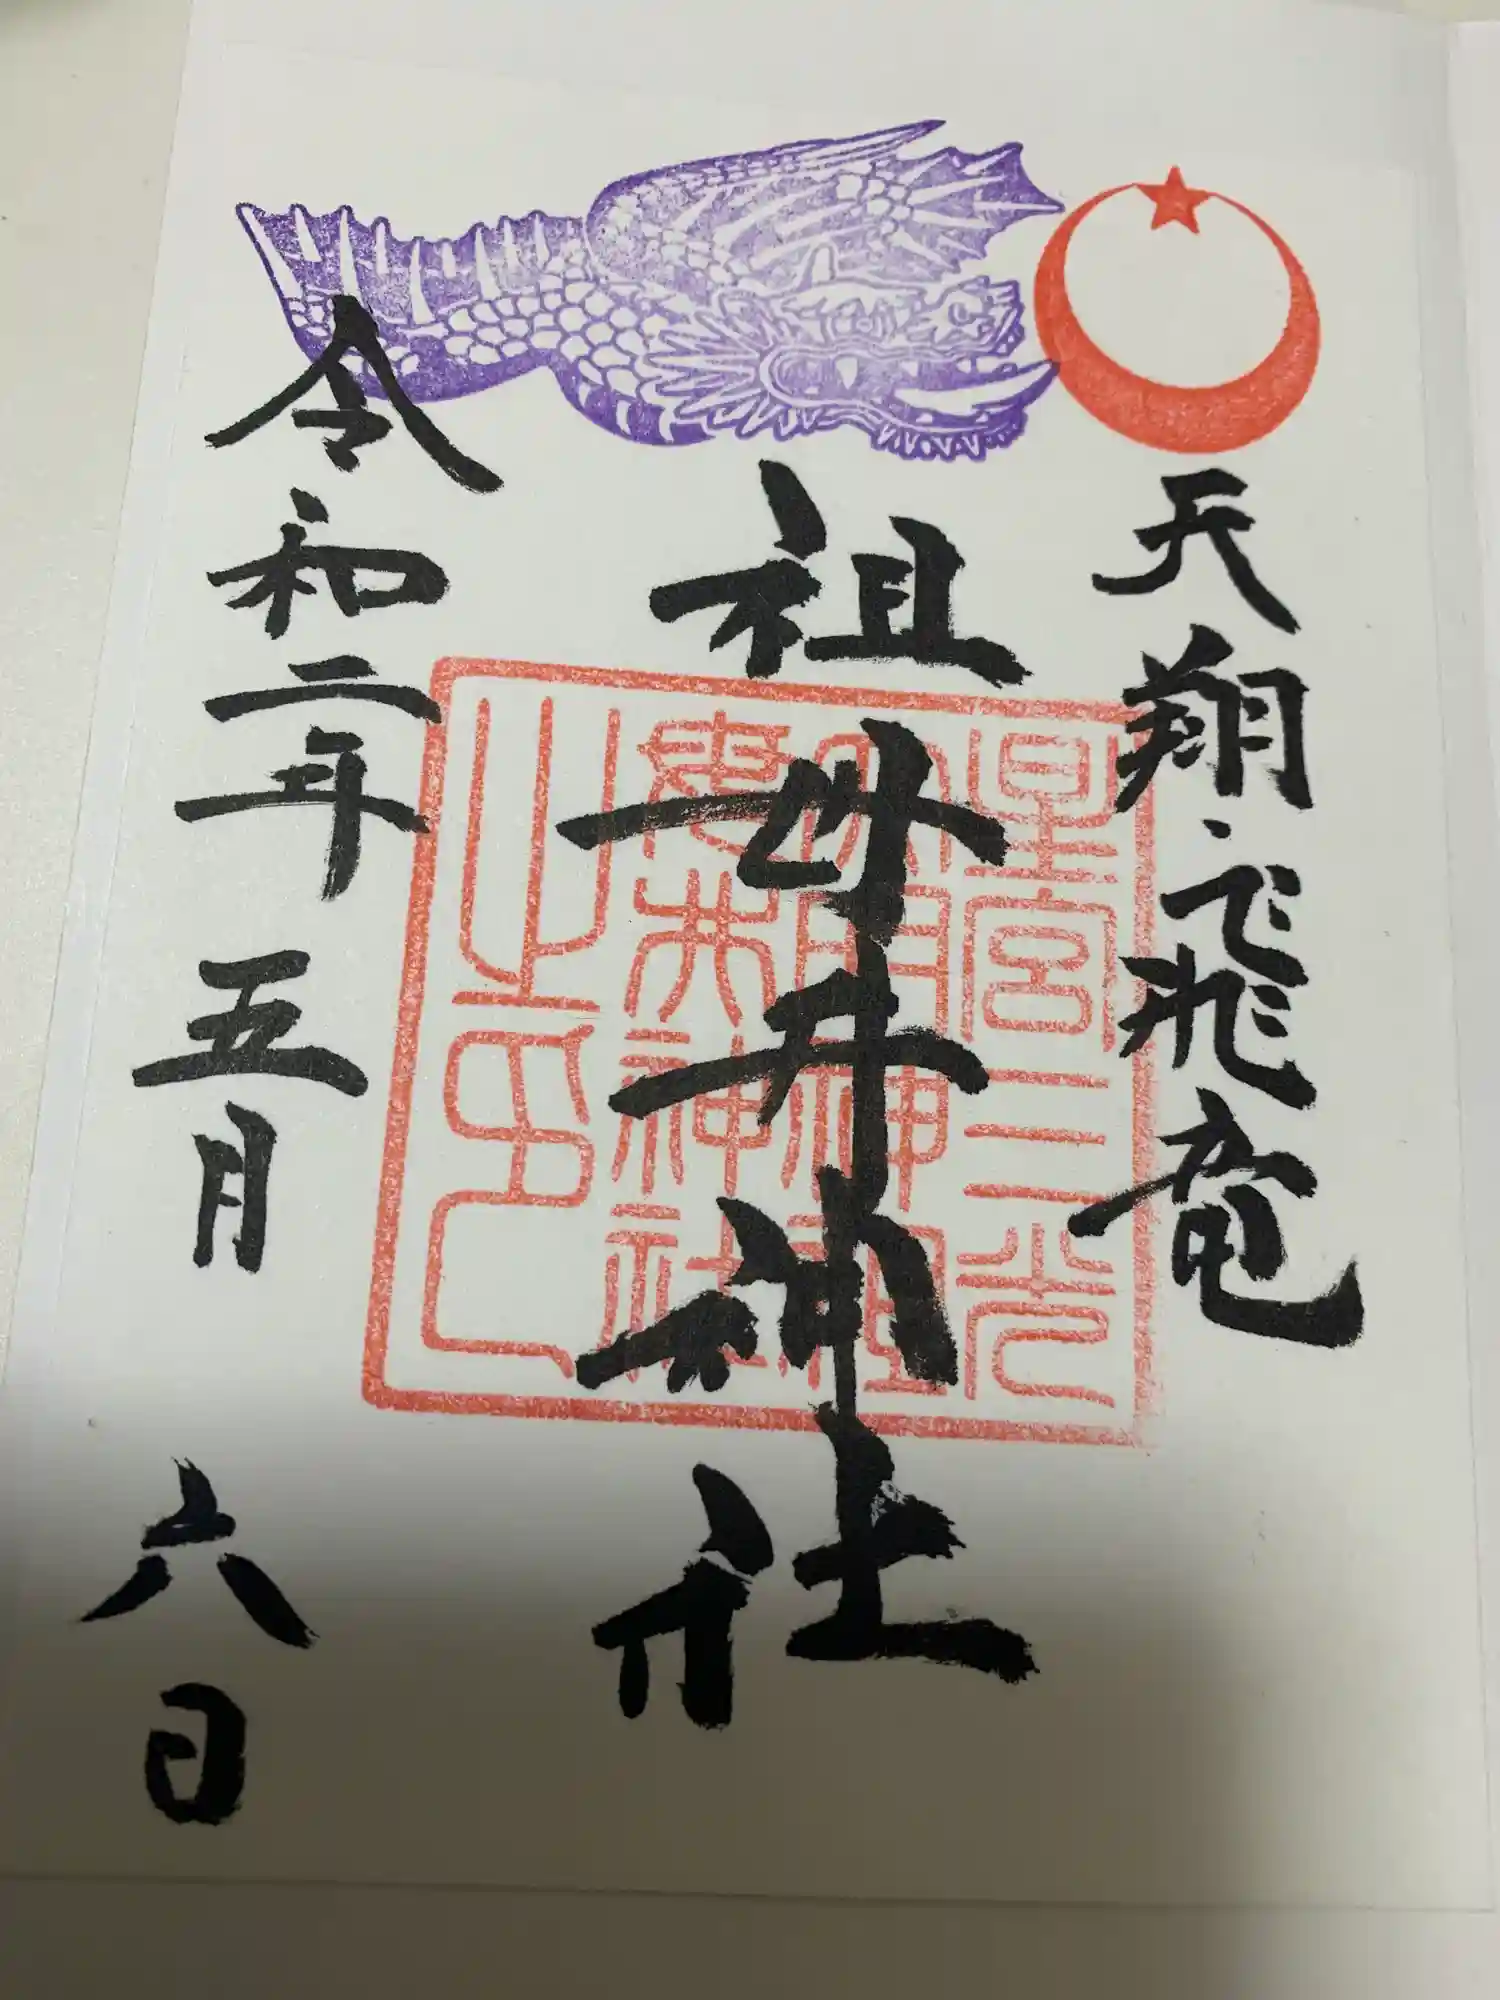 天翔・飛竜
祖母井神社
令和二年五月六日
星宮三光
大明神祖
母井神社
之印